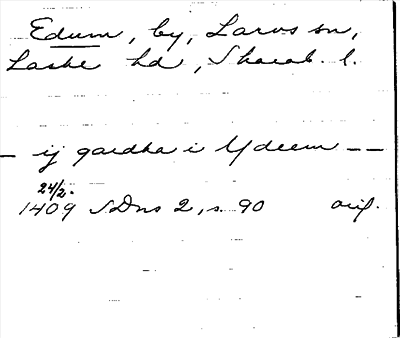 Edum, by, Larvs sn,
Laske hd, Skarab. l.
— ij gardha i Ydeem — —
24/2.
1409 SDns 2, s. 90 orig.